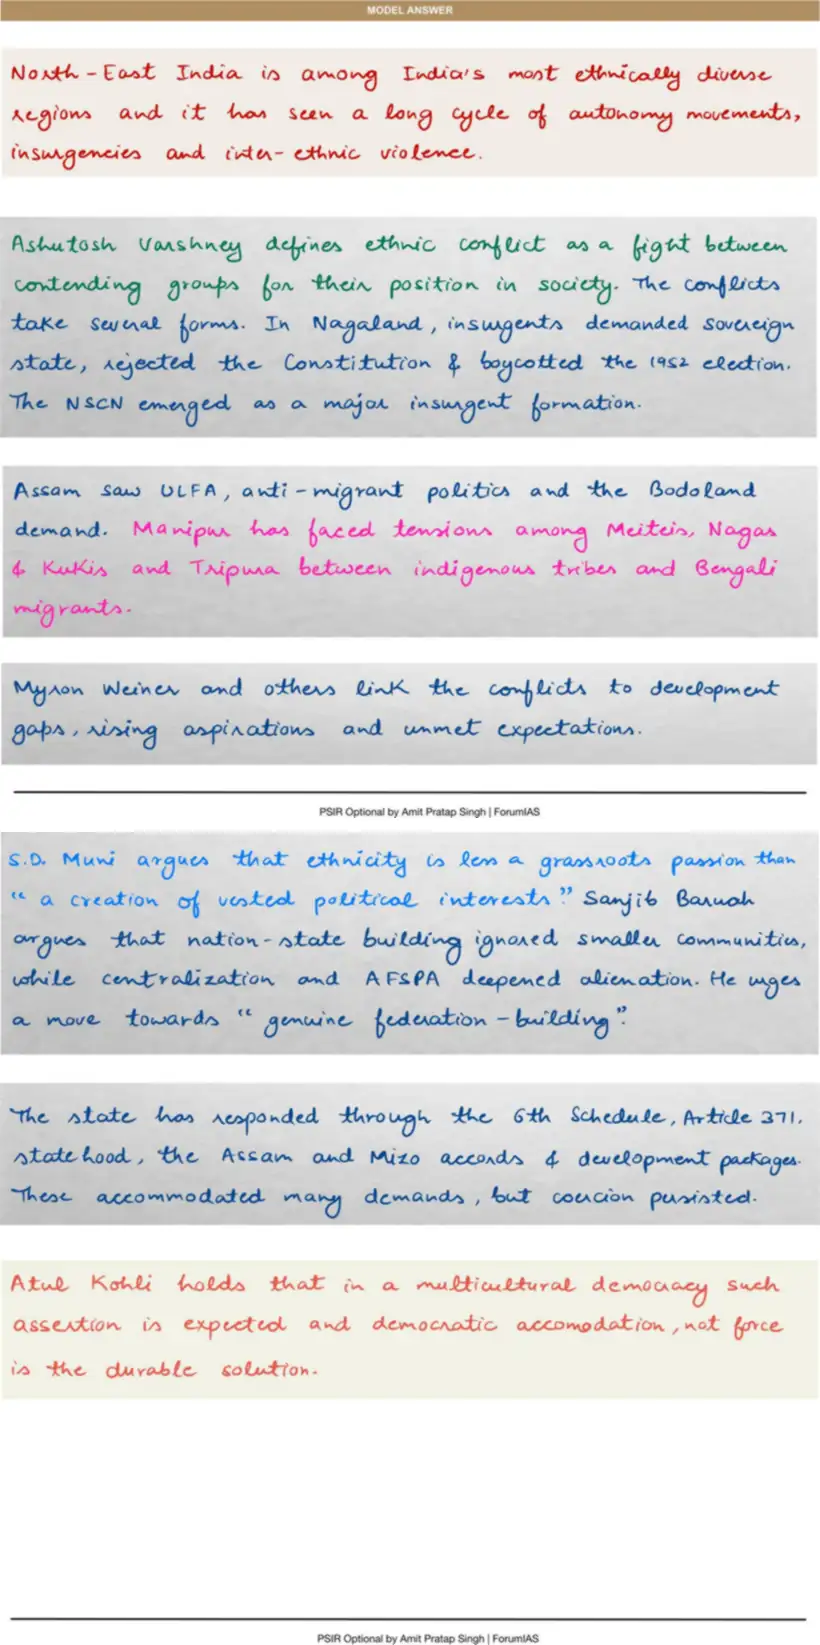 MODEL ANSWER
North-East India is among India's most ethnically diverse
regions and it has seen a long cycle of autonomy movements,
insurgencies and inter-ethnic violence.
Ashutosh Varshney defines ethnic conflict as a fight between
contending groups for their position in society. The conflicts
take several forms. In Nagaland, insurgents demanded sovereign
state, rejected the Constitution & boycotted the 1952 election.
The NSCN emerged as a major insurgent formation.
Assam saw ULFA, anti-migrant politics and the Bodoland
demand. Manipur has faced tensions among Meiteis, Nagas
& Kukis and Tripura between indigenous tribes and Bengali
migrants.
Myron Weiner and others link the conflicts to development
gaps, rising aspirations and unmet expectations.
PSIR Optional by Amit Pratap Singh | ForumIAS
S.D. Muni argues that ethnicity is less a grassroots passion than
"a creation of vested political interests". Sanjib Baruah
argues that nation-state building ignored smaller communities,
while centralization and AFSPA deepened alienation. He urges
a move towards "genuine federation-building".
The state has responded through the 6th Schedule, Article 371,
statehood, the Assam and Mizo accords & development packages.
These accommodated many demands, but coercion persisted.
Atul Kohli holds that in a multicultural democracy such
assertion is expected and democratic accomodation, not force
is the durable solution.
PSIR Optional by Amit Pratap Singh | ForumIAS